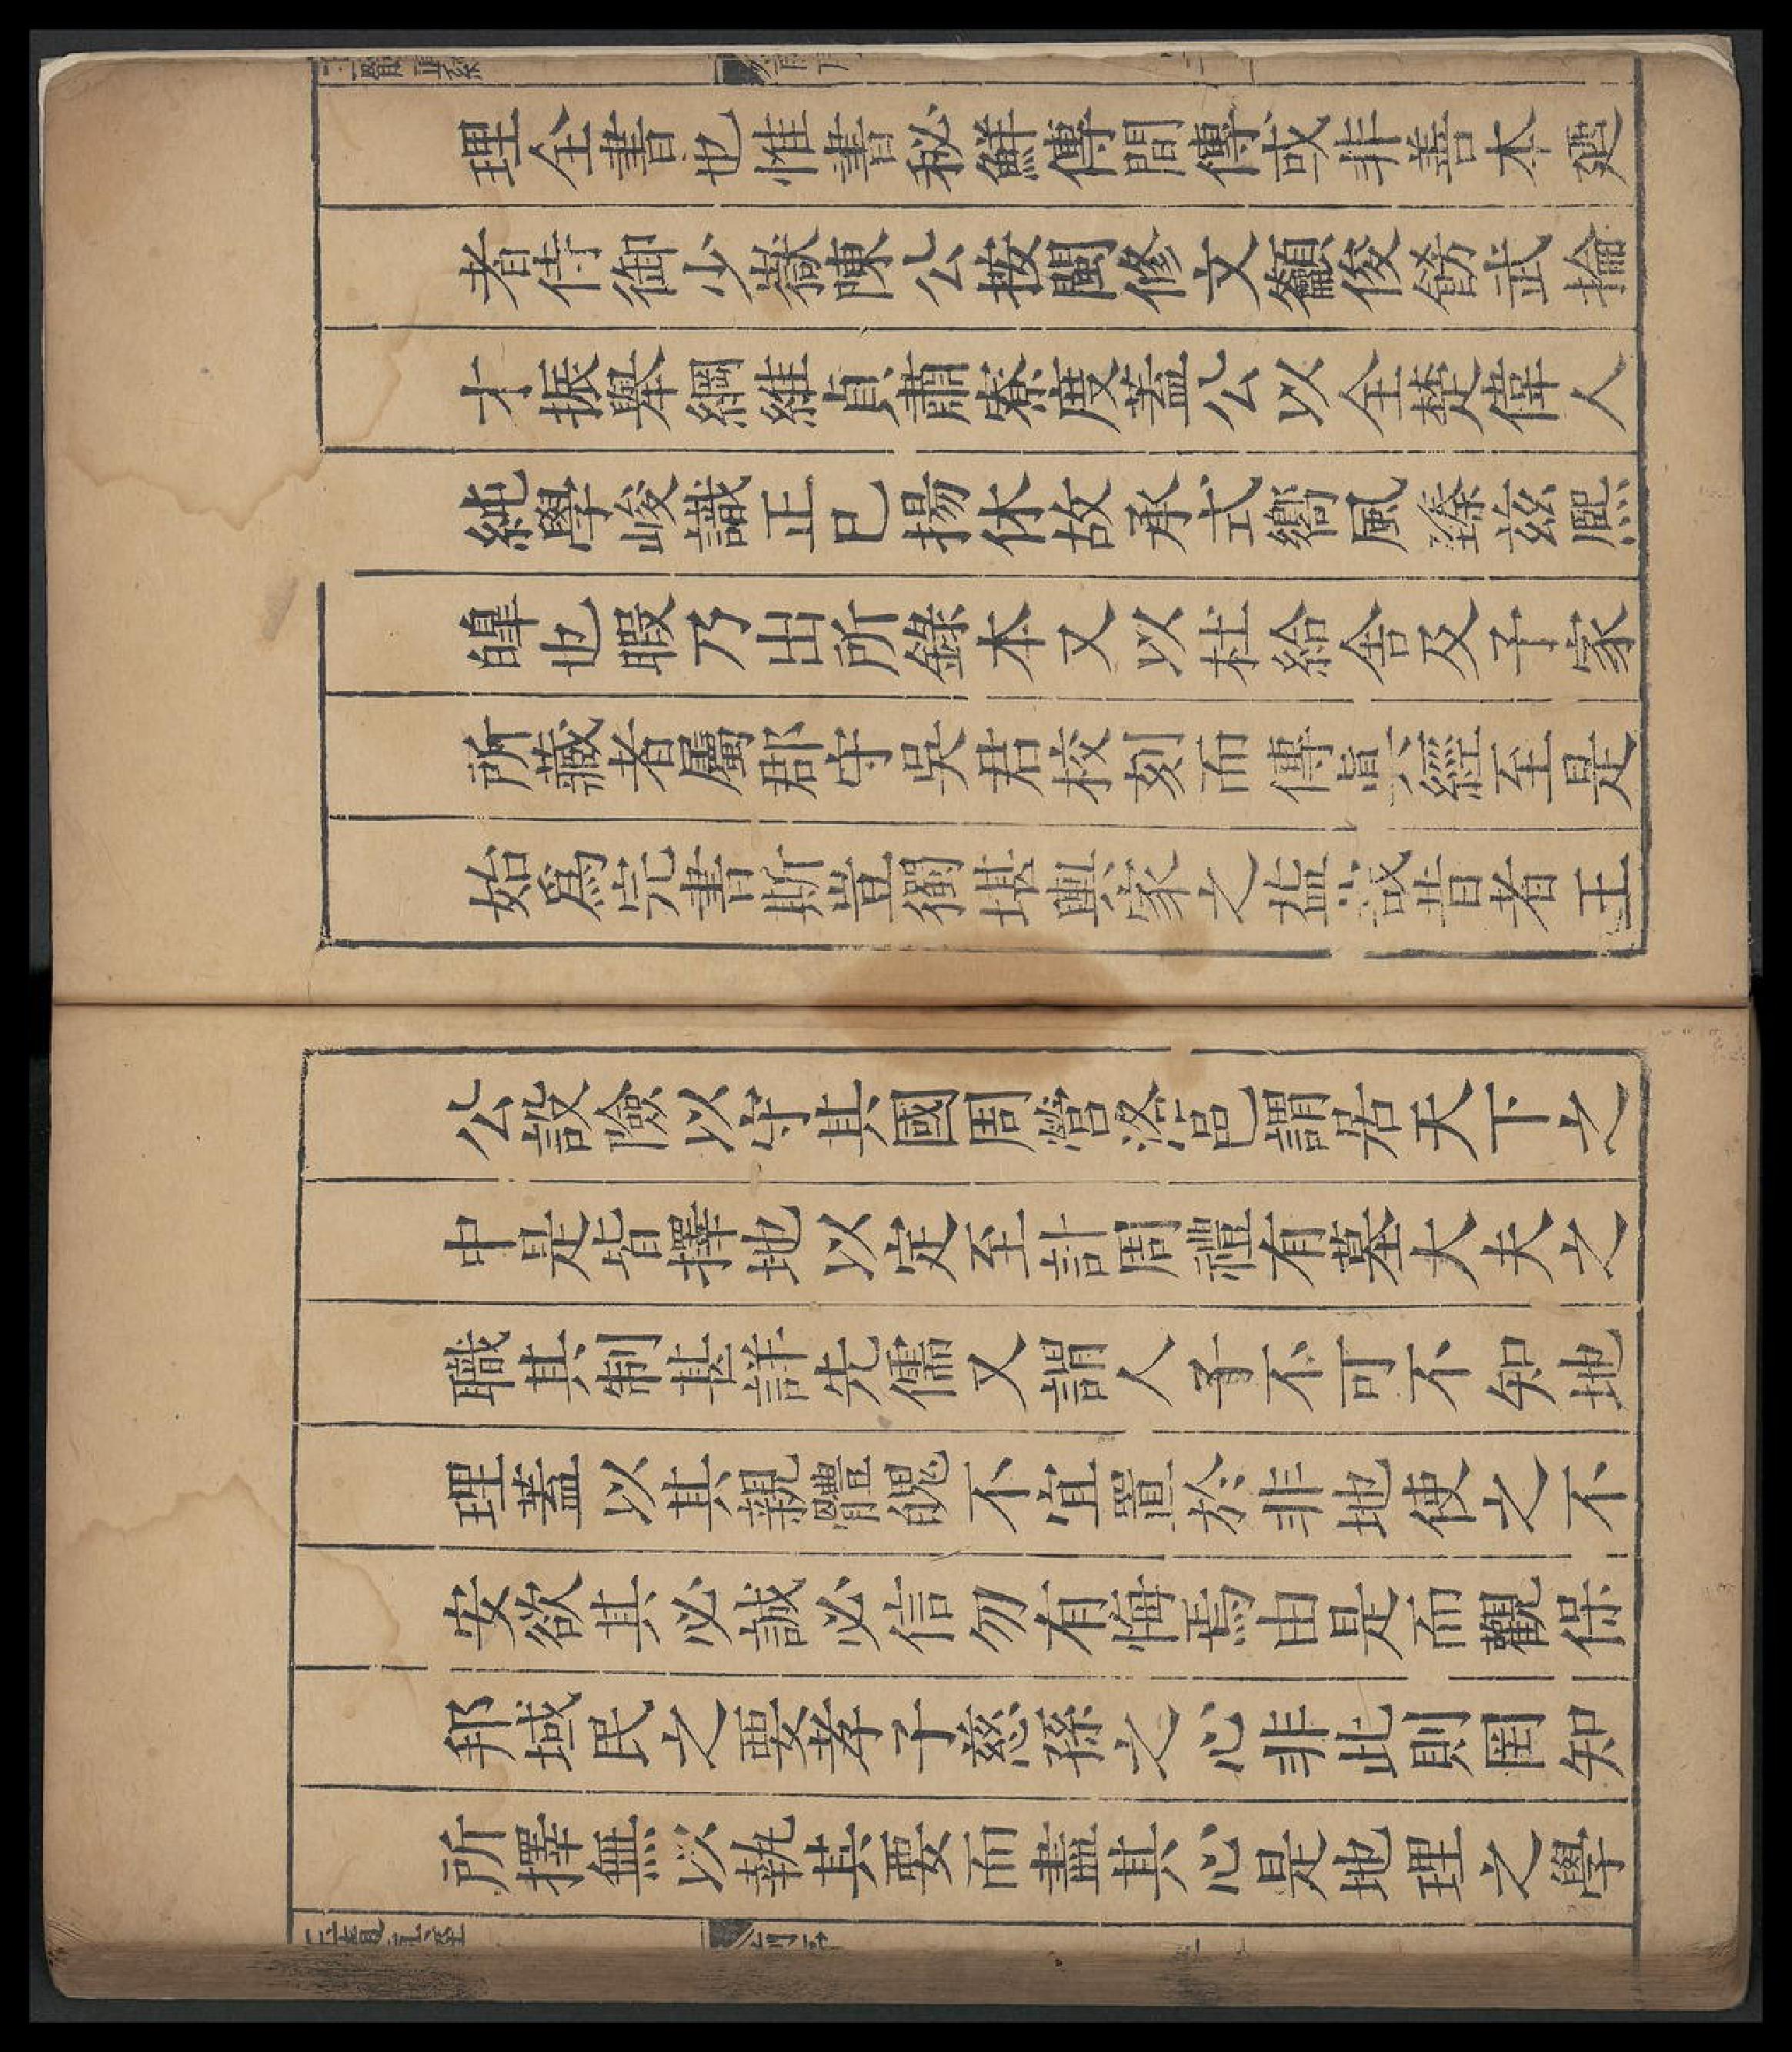 理全書也惟書秘鮮傳間傳或非善本廼
者侍御少嶽陳公按閩修文籲俊飭武掄
才振舉綱維貞肅寮度蓋公以全楚偉人
純學峻識正已揚休故承式嚮風臻茲熈
皞也暇乃出所錄本又以杜給舍及予家
所藏者屬郡守吳君校刻而傳眞經至是
始爲完書斯豈獨堪輿家之益哉昔者王
公設險以守其國周營洛邑謂居天下之
中是皆擇地以定至計周禮有墓大夫之
職其制甚詳先儒又謂人子不可不知地
理蓋以其親體魄不宜置於非地使之不
安欲其必誠必信勿有悔焉由是而觀保
邦域民之要孝子慈孫之心非此則罔知
所擇無以執其要而盡其心是地理之學